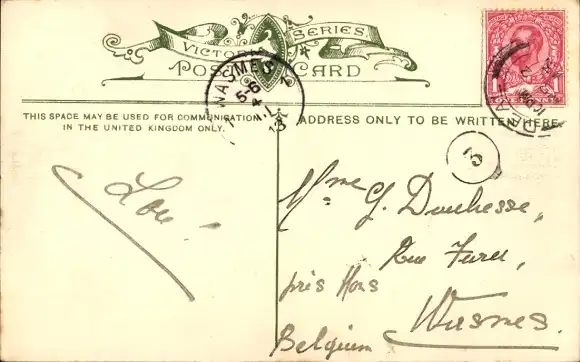 VICTORIA SERIES
POST CARD
WASMES
THIS SPACE MAY BE USED FOR COMMUNICATION
IN THE UNITED KINGDOM ONLY.
ADDRESS ONLY TO BE WRITTEN HERE.
15
Lou!
Mme G. Duchesse,
Rue
près Mons
Wasmes.
Belgium